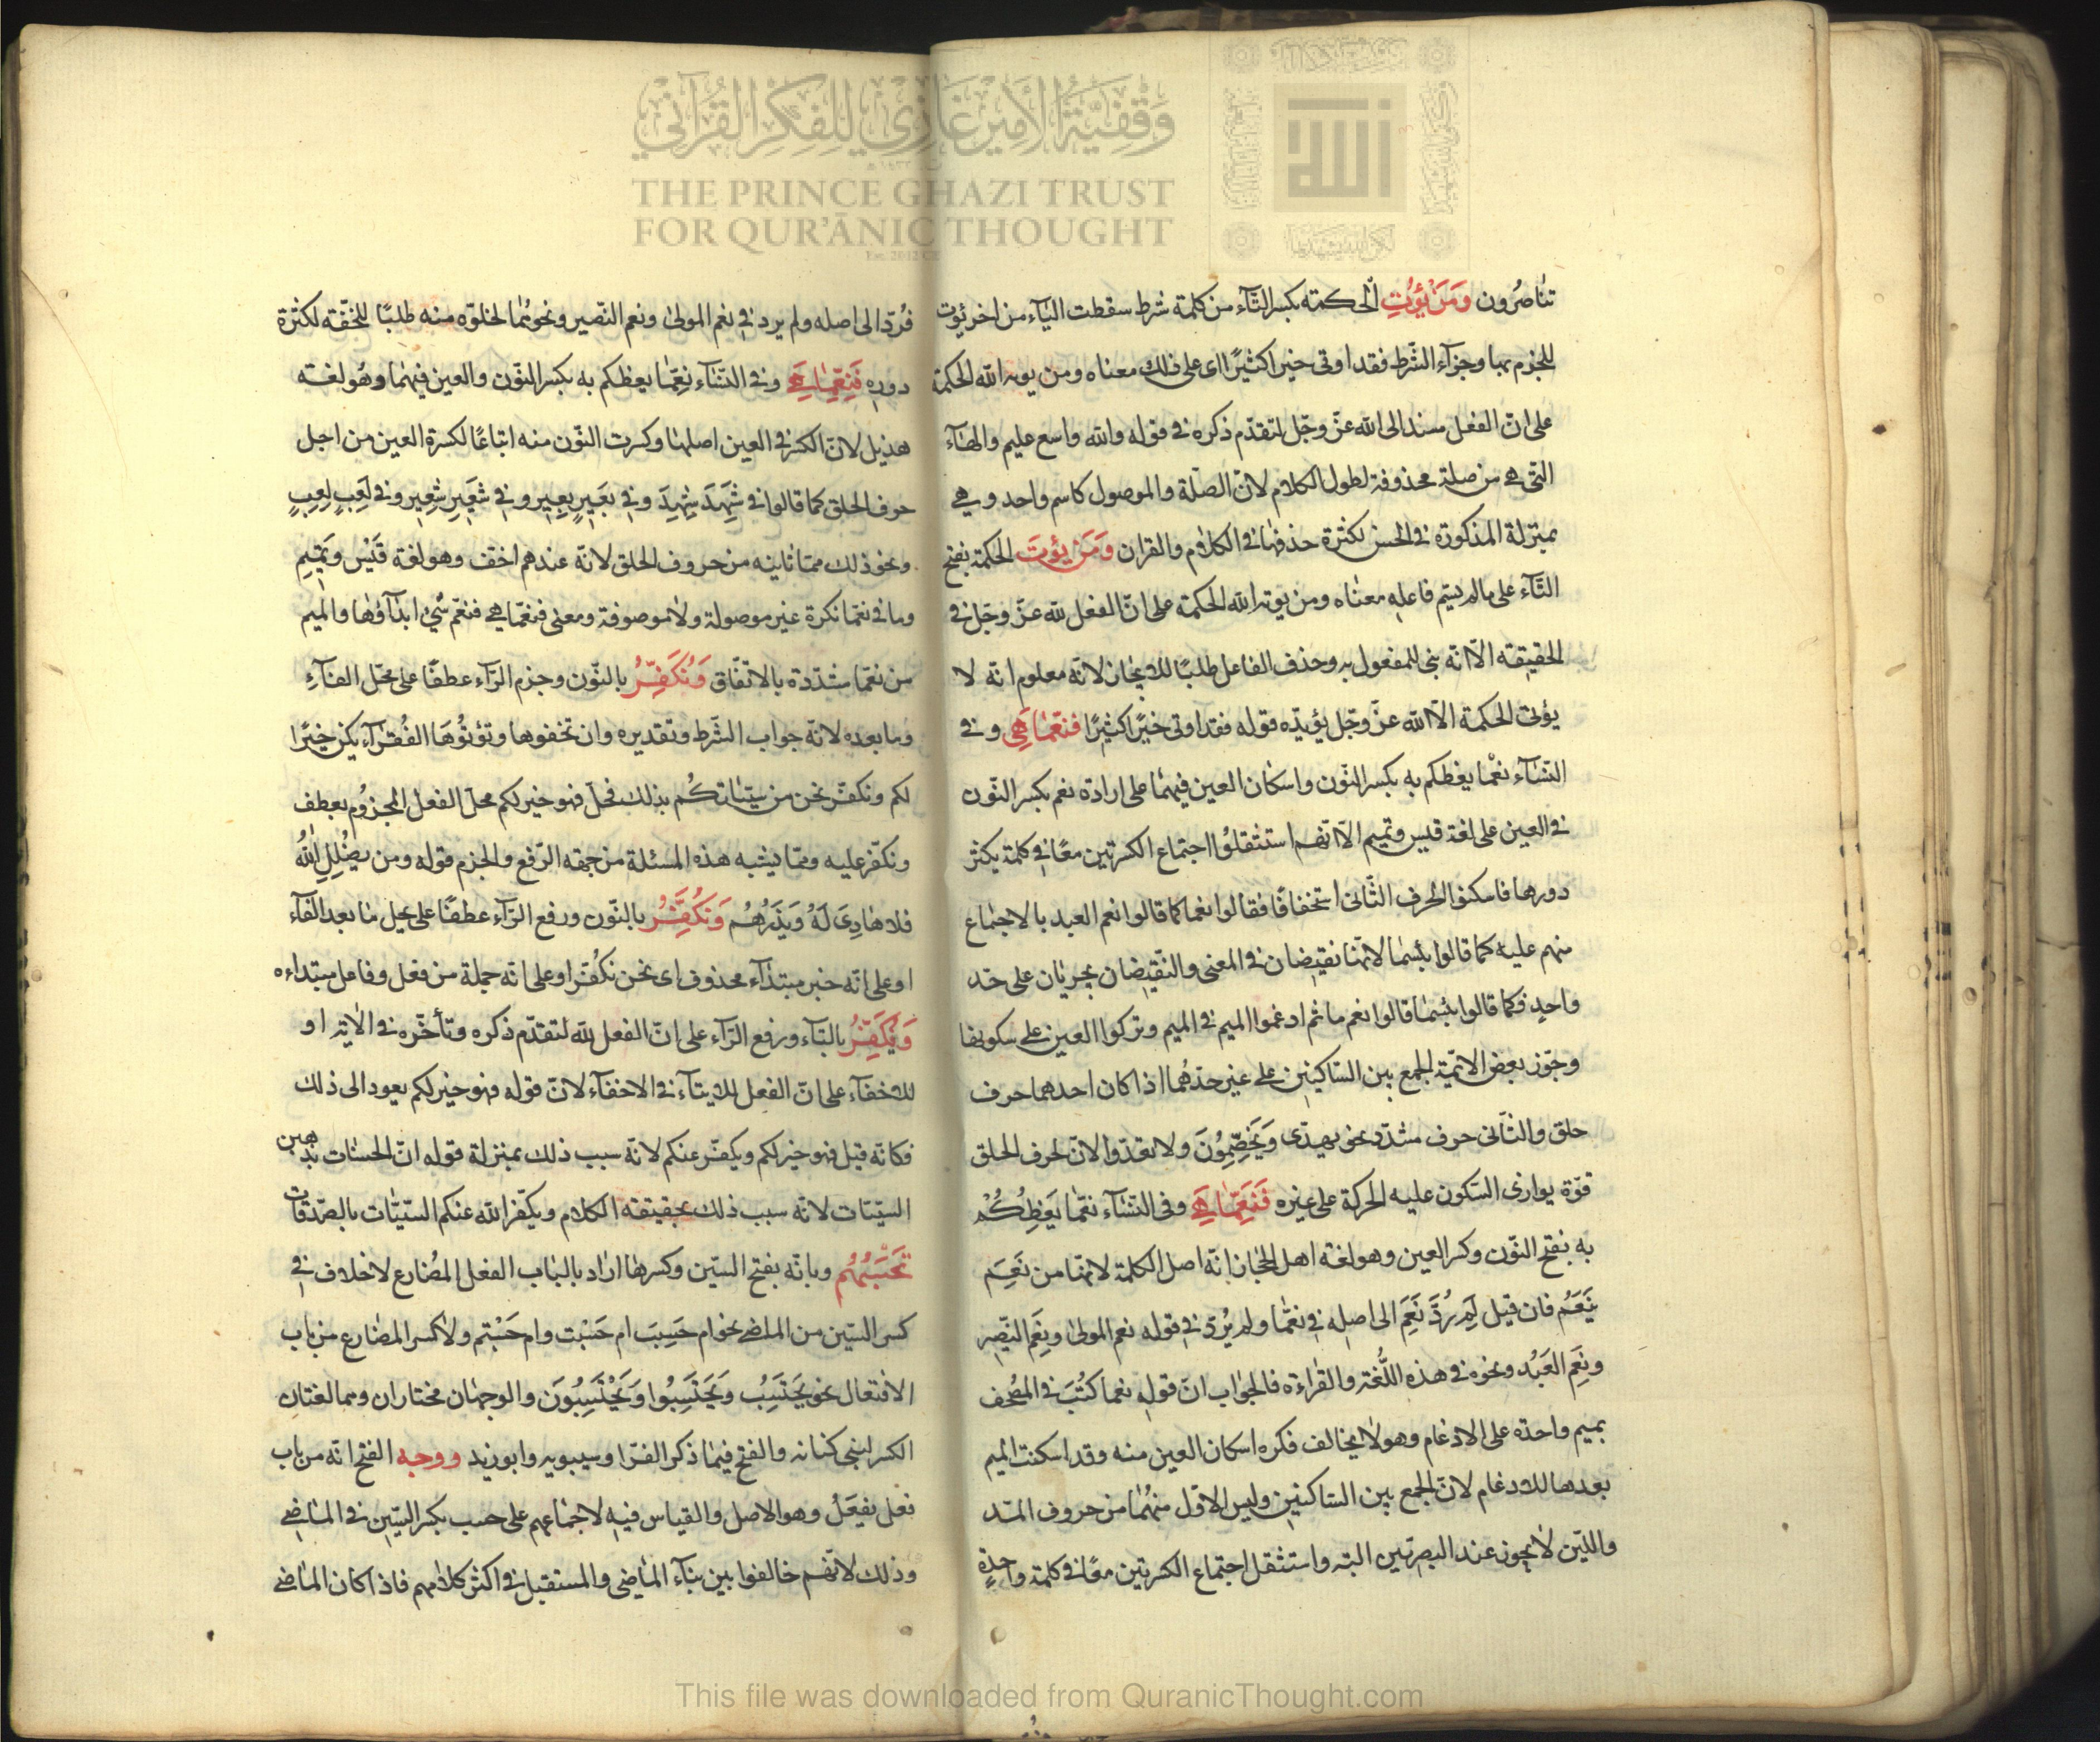 تناصرون وَمَنْ يُؤْتِ الْحكمة بكسر التّآء من كلمة شرط سقطت اليآء من اخر يُوت
للجزم بها وجزآء الشّرط فقد اوتى خيرا كثيرًا اى على ذلك معناه ومن يوته الله الحكمة
على انّ الفعل مسند الى الله عزّ وجّل لتقدّم ذكره فى قوله والله واسع عليم والهآء
التى هى من صلة محذوفة لطول الكلام لانّ الصّلة والموصول كاسم واحد وهى
بمنزلة المذكورة فى الحسن لكثرة حذفها فى الكلام والقران وَمَن يؤتَ الحكمة بفتح
التّآء على مالم يسّم فاعله معناه ومن يوته الله الحكمة على انّ الفعل لله عزّ وجّل فى
الحقيقة الّا انّه بنى للمفعول به وحذف الفاعل طلبًا للايجاز لانّه معلوم انّه لا
يؤتى الحكمة الّا الله عزّ وجّل يؤيدّه قوله فقد اوتى خيرًا كثيرًا فنعّما هِى وفى
النّسآء نعْما يعظكم به بكسر النّون واسكان العين فيهما على ارادة نعم بكسر النّون
فى العين على لغة قيس وتميم الّا انّهم استثقلُوا اجتماع الكسرتين معًا فى كلمة يكثر
دورها فاسكنوا الحرف الثّانى استخفافًا فقالوا نعما كما قالوا نعم العبد بالاجماع
منهم عليه كما قالوا بئسما لانّهما نقيضان فى المعنى والنّقيضان يجريان على حّد
واحد فكما قالوا بئسما قالوا نعم ما ثم ادغموا الميم فى الميم وتركوا العين على سكونها
وجّوز بعض الائمّة الجمع بين السّاكنين على غير حدّهما اذا كان احدهما حرف
حلق والثّانى حرف مشدّد نحو يهدّى وَيَخِصِّمُونَ ولا تعدّوا لانّ لحرف الحلق
قوّة يوازى السّكون عليه الحركة على غيره فَنَعِمّا هِىَ وفى النّسآء نعّما يَعِظُكُمْ
به بفتح النّون وكسر العين وهو لغة اهل الحجاز انّه اصل الكلمة لانّها من نَعِمَ
يَنعَمُ فان قيل لِمَ رُدَّ نَعِمَ الى اصله فى نعّما ولم يُردّ فى قوله نعم المولى ونِعَم النّصير
ونِعِم العَبْد ونحوه فى هذه اللُّغة والقراءة فالجواب انّ قوله نعما كُتُبَ فى المصُحف
بميم واحدة على الادغام وهو لا يخالف فكره اسكان العين منه وقد اسكنت الميم
بعدها للادغام لانّ الجمع بين السّاكنين وليس الاوّل منهُما من حروف المّد
واللّين لا يجوز عند البصرّيين البته واستثقل اجتماع الكسرتين معًا فى كلمة واحدةٍ
فُردّ الى اصله ولم يرد فى نعم المولى ونعم النّصير ونحوهُما لخلوّه منه طلبًا للخفّة لكثرة
دوره فَنِعِمّا هِىَ وفى النّسآء نِعِمّا يعظكم به بكسر النّون والعين فيهما وهُو لغة
هذيل لانّ الكسر فى العين اصلها وكسرت النّون منه اتباعًا لكسرة العين من اجل
حرف الحلق كما قالوا فى شَهِدَ شِهِدَ وفى بَعيرٍ بِعِير وفى شَعِيرٍ شِعِير وفى لَعِبٍ لِعِبٍ
ونحو ذلك ممّا ثانيه من حروف الحلق لانّه عندهم اخّف وهو لغة قَيْس وَتميمِ
وما فى نعّما نكرة غير موصولة ولا موصوفة ومعنى فنعّما هى فنعّم شئ ابدآؤها والميم
من نعّما مشدّدة بالاتّفاق وَنُكَفِّرْ بالنّون وجزم الرّآء عطفًا على محّل الفآءِ
وما بعده لانّه جواب الشّرط وتقديره وان تخفوها وتؤتُوْهَا الفُقرآء يكن خيرًا
لكم ونكفّر نحن من سيّئاتكُم بذلك فحلّ فهو خير لكم محلّ الفعل المجزُوم بعطف
ونكفّر عليه وممّا يشبه هذه المسئلة من جهة الرّفع والجزم قوله ومن يضْلِلِ اللهُ
فلا هادِىَ لَهُ وَيَذَرُهُم وَنُكَفِّرُ بالنّون ورفع الرّآء عطفًا على محل ما بعد الفآء
او على انّه خبر مبتدآء محذوف اى نحن نكُفّر او على انّه جملة من فعل وفاعل مبتداءه
وَيُكَفِّرُ باليّآء ورفع الرّآء على انّ الفعل لله لتقدّم ذكره وتأخّره فى الآية او
للاخفآء على انّ الفعل للايتآء فى الاخفآء لانّ قوله فهو خير لكم يعود الى ذلك
فكانّه قيل فهو خير لكم ويكفّر عنكم لانّه سبب ذلك بمنزلة قوله انّ الحسنات يذهبن
السيّئات لانّه سبب ذلك بحقيقة الكلام ويكّفر الله عنكم السيّئات بالصّدقات
تَحْسَبُهُم وبابه بفتح السّين وكسرها اراد بالباب الفعل المضارع لا خلاف فى
كسر السّين من الماضى نحو ام حَسِبَ ام حَسْبت وام حَسْبتم ولا كسر المضارع من باب
الافتعال نحو يَحتَسِبُ وَيَحتَسِبُوا وَيَحْتَسِبُونَ والوجهان مختاران وهما لغتان
الكسر لبنى كنانه والفتح فيما ذكر الفرّا وسيبويه وابوزيد ووجه الفتح انّه من باب
فعل يفعَلُ وهو الاصل والقياس فيه لاجماعهم على حسب بكسر السّين فى الماضى
وذلك لانّهم خالفوا بين بنآء الماضى والمستقبل فى اكثر كلامهم فاذا كان الماضى
وَقْفِيَّةُ الْأَمِيْرِ غَازِي لِلْفِكْرِ الْقُرْآنِي
THE PRINCE GHAZI TRUST
FOR QUR'ĀNIC THOUGHT
Est. 2012 CE
This file was downloaded from QuranicThought.com